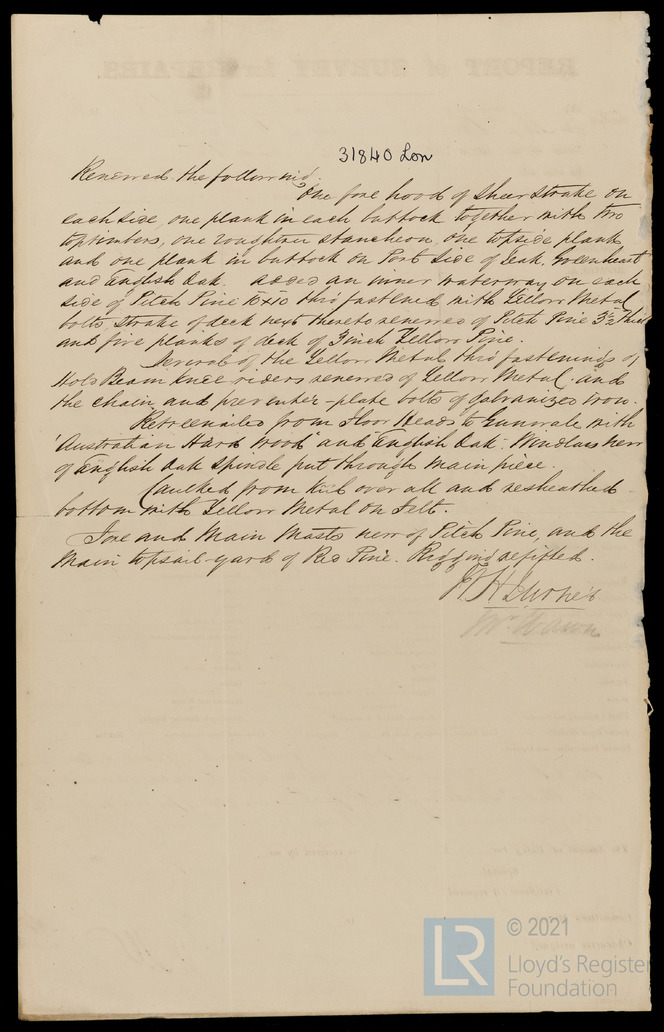 REPORT of SURVEY for REPAIRS.
31840 Lon
Renewed the following.
One fore hood of Sheerstrake on
each side, one plank in each buttock together with two
toptimbers, one roughtree stancheon, one topside plank
and one plank in buttock on Port Side of Teak, Greenheart
and English Oak. Added an inner waterway on each
side of Pitch Pine 10x10 thro' fastened with Yellow Metal
bolts, strake of deck next thereto renewed of Pitch Pine 3½ thick
and five planks of deck of 3 inch Yellow Pine.
Several of the Yellow Metal thro' fastenings of
Hold Beam knee riders renewed of Yellow Metal and
the chain and preventer-plate bolts of Galvanized Iron.
Retreenailed from Floor Heads to Gunwale with
"Australian Hard Wood" and English Oak. Windlass new
of English Oak Spindle put through main piece.
Caulked from keel over all and resheathed
bottom with Yellow Metal on Felt.
Fore and Main Masts new of Pitch Pine, and the
Main topsail-yard of Red Pine. Rigging refitted.
© 2021
LR Lloyd's Register
Foundation